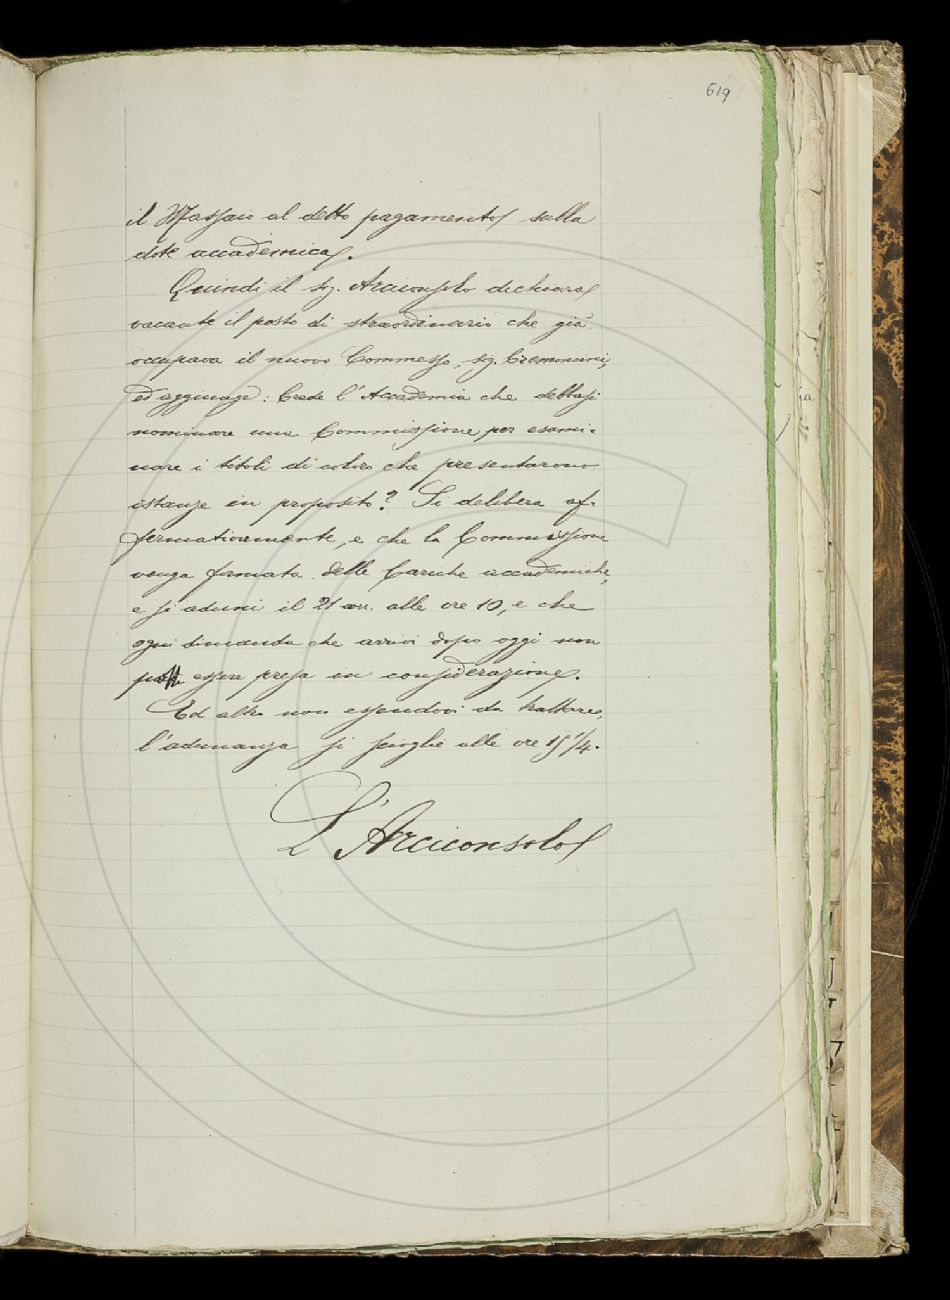 619
il Massaio al detto pagamento sulla
dote accademica.
Quindi il sig. Arciconsolo dichiara
vacante il posto di straordinario che già
occupava il nuovo Commesso, sig. Cremoncini,
ed aggiunge: Crede l'Accademia che debbasi
nominare una Commissione per esami-
nare i titoli di coloro che presentarono
istanze in proposito? Si delibera af-
fermativamente, e che la Commissione
venga formata delle Cariche accademiche,
e si aduni il 21 corr. alle ore 10, e che
ogni dimanda che arrivi dopo oggi non
essere presa in considerazione.
Ed altro non essendovi da trattare,
l'adunanza si scioglie alle ore 15 1/4.
L'Arciconsolo